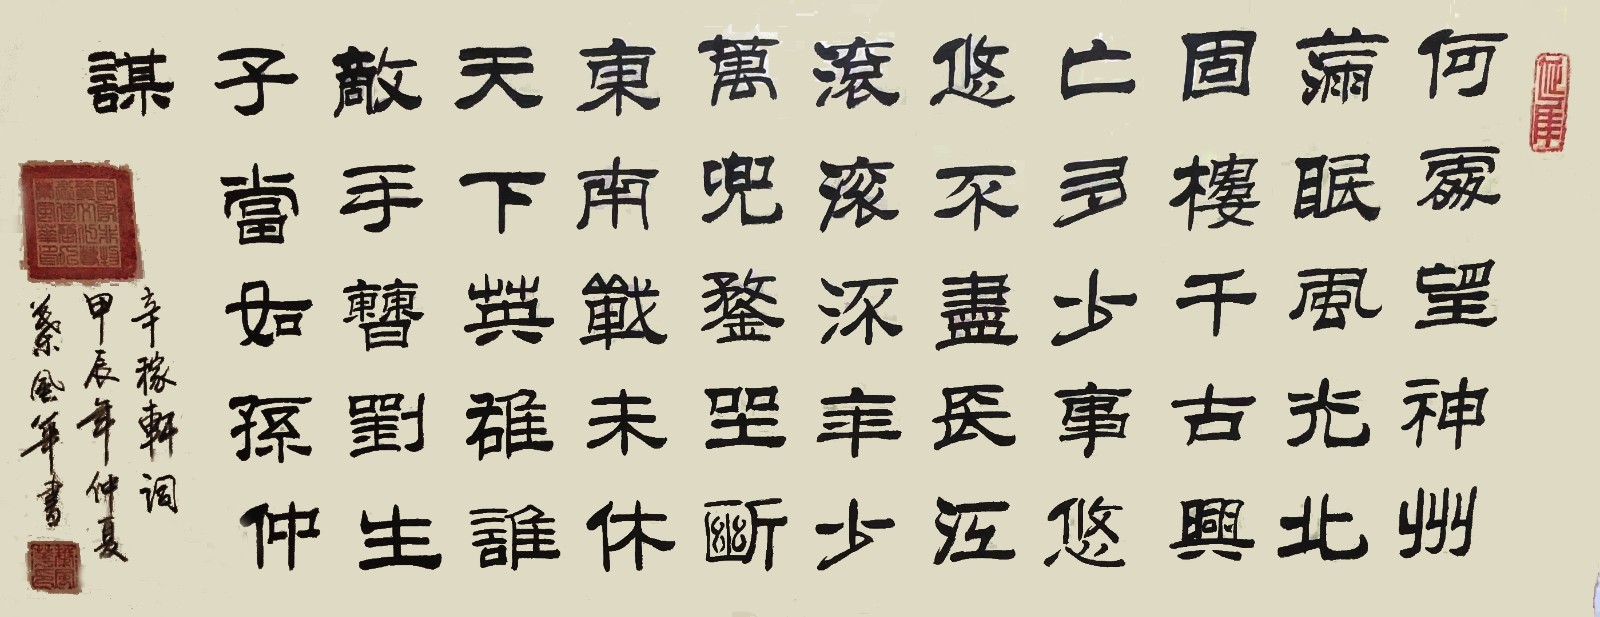 何處望神州
滿眼風光北
固樓千古興
亡多少事悠
悠不盡長江
滾滾流年少
萬兜鍪坐斷
東南戰未休
天下英雄誰
敵手曹劉生
子當如孫仲
謀
辛稼軒詞
甲辰年仲夏
風華書